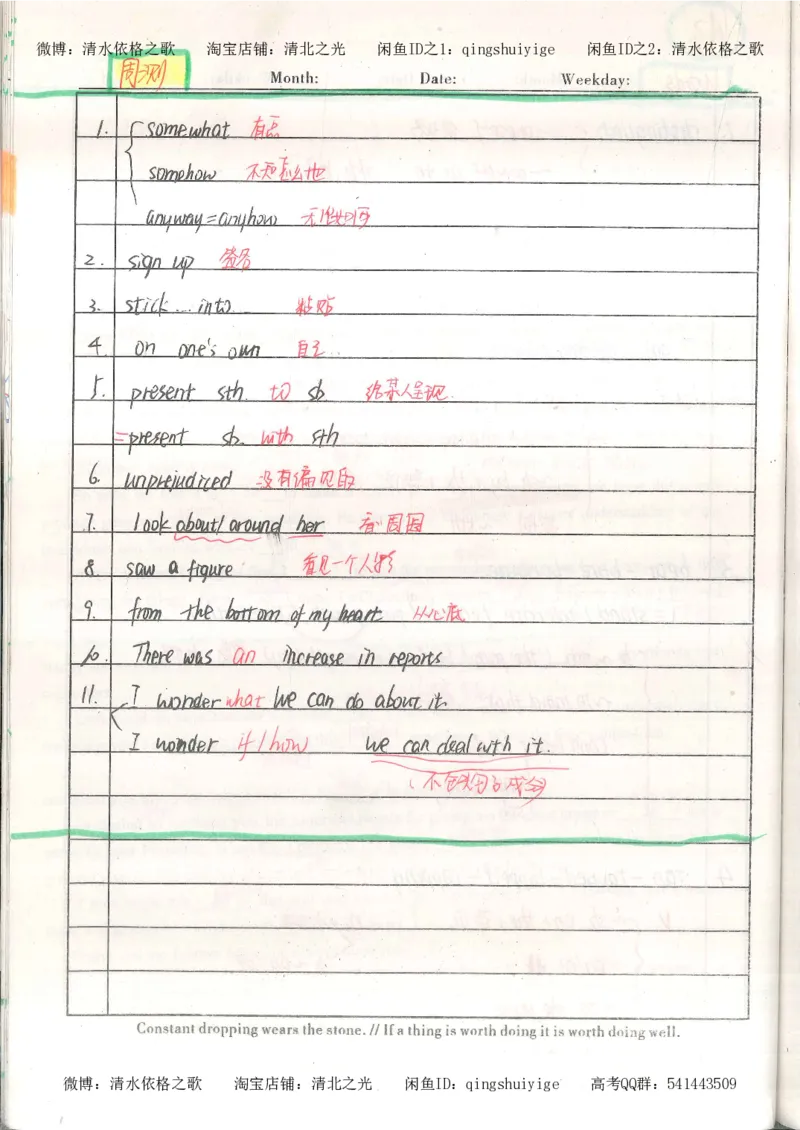 微博：清水依格之歌 淘宝店铺：清北之光 闲鱼ID之1：qingshuiyige 闲鱼ID之2：清水依格之歌
周测 Month: Date: Weekday:
1. somewhat 有点
somehow 不知怎么地
anyway=anyhow 无论如何
2. sign up 签名
3. stick...into... 粘贴
4. on one's own 自己
5. present sth. to sb. 给某人呈现
=present sb. with sth
6. unprejudiced 没有偏见的
7. look about/around her 看周围
8. saw a figure 看见一个人影
9. from the bottom of my heart 从心底
10. There was an increase in reports
11. I wonder what we can do about it.
I wonder if/how we can deal with it.
Constant dropping wears the stone. // If a thing is worth doing it is worth doing well.
微博：清水依格之歌 淘宝店铺：清北之光 闲鱼ID：qingshuiyige 高考QQ群：541443509